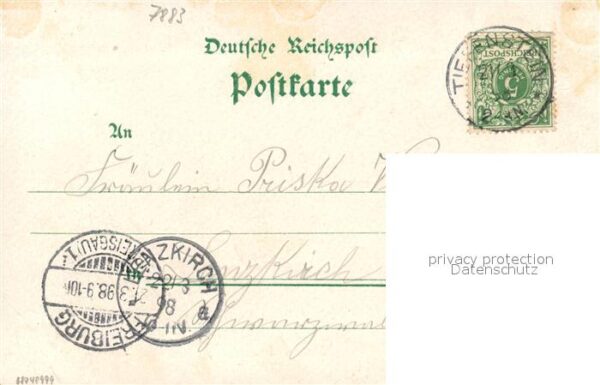 7883
Deutsche Reichspost
Postkarte
TIEFENSTEIN
REICHSPOST
5
An
Fräulein Priska
Lenzkirch
Schwarzwald
LENZKIRCH
98
FREIBURG (BREISGAU) 1.
21.3.98.9-10N
privacy protection
Datenschutz